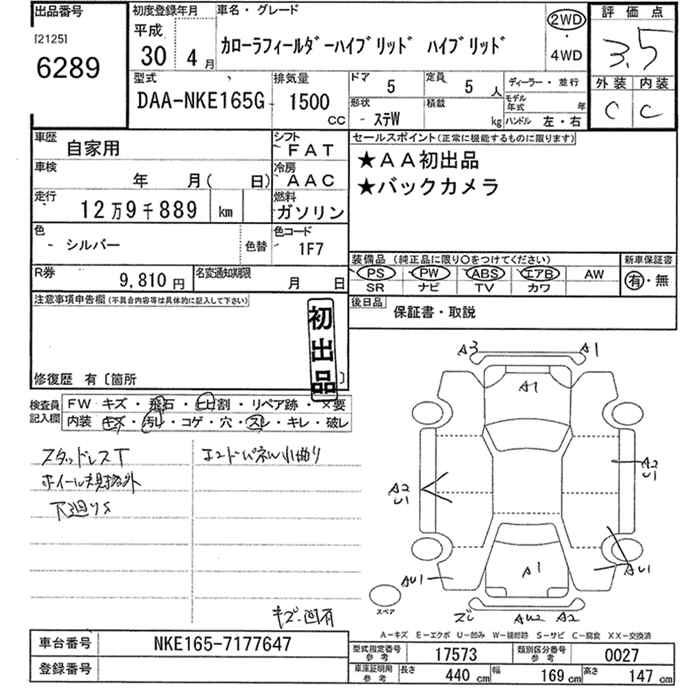 出品番号
[2125]
6289
初度登録年月
平成
30 4月
車名・グレード
カローラフィールダーハイブリッド ハイブリッド
2WD
・
4WD
評価点
3.5
外装 内装
C C
型式
DAA-NKE165G
排気量
1500
CC
ドア
5
定員
5人
形状
- ステW
積載
kg
ディーラー・並行
モデル年式 年
ハンドル 左・右
車歴
自家用
シフト
FAT
車検
年 月( 日)
冷房
AAC
走行
12万9千889 km
燃料
ガソリン
色
- シルバー
色替
色コード
1F7
R券
9,810円
名変通知期限
月 日
セールスポイント(正常に機能するものに限ります)
★AA初出品
★バックカメラ
装備品 (純正品に限り○をつけてください)
PS PW ABS エアB AW
SR ナビ TV カワ
新車保証書
有・無
後日品
保証書・取説
注意事項申告欄(不具合内容等は具体的に記入して下さい)
初出品
修復歴 有〔箇所 〕
検査員記入欄
FW キズ・飛石・ヒビ割・リペア跡・×要
内装 キズ・汚レ・コゲ・穴・スレ・キレ・破レ
スタッドレスT
ホイール規格外
下廻りS
エンドパネル小曲り
キズ・凹有
A3 A1
A1
A2
U1
A2
U1
AU1
A1
AU1
スペア
ズレ AU2 A2
A-キズ E-エクボ U-凹み W-補修跡 S-サビ C-腐食 XX-交換済
車台番号
NKE165-7177647
登録番号
型式指定番号 参考
17573
類別区分番号 参考
0027
車庫証明用 参考
長さ 440 cm 幅 169 cm 高さ 147 cm